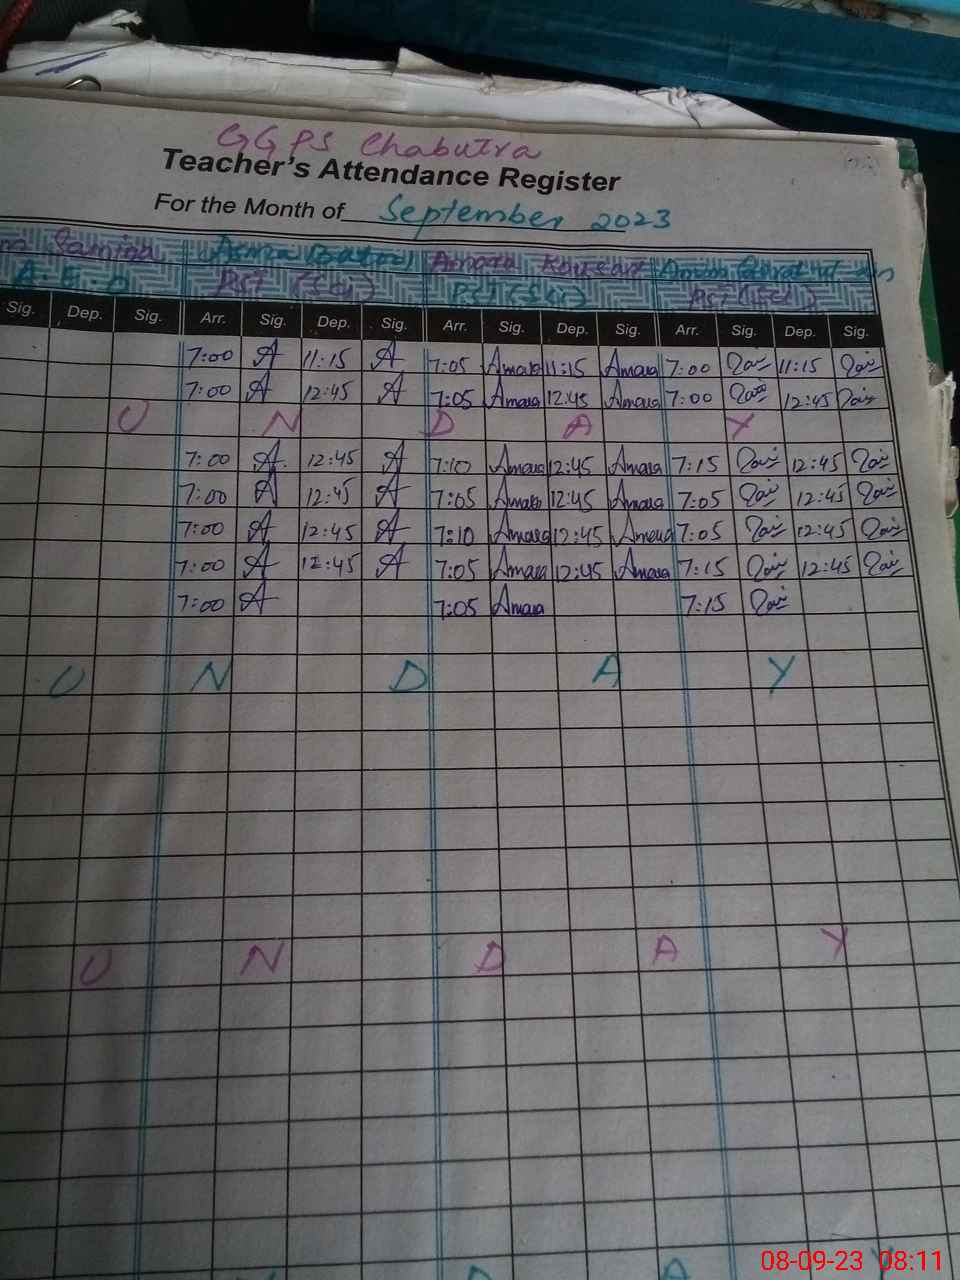 GGPS Chabutra
Teacher's Attendance Register
For the Month of September 2023
Samina Asma Batool Amara Kousar
A.E.O PST (Sci) PST (Sci) PST (Sci)
Sig. Dep. Sig. Arr. Sig. Dep. Sig. Arr. Sig. Dep. Sig. Arr. Sig. Dep. Sig.
7:00 A 11:15 A 7:05 Amara 11:15 Amara 7:00 11:15
7:00 A 12:45 A 7:05 Amara 12:45 Amara 7:00 12:45
U N D A Y
7:00 A 12:45 A 7:10 Amara 12:45 Amara 7:15 12:45
7:00 A 12:45 A 7:05 Amara 12:45 Amara 7:05 12:45
7:00 A 12:45 A 7:10 Amara 12:45 Amara 7:05 12:45
7:00 A 12:45 A 7:05 Amara 12:45 Amara 7:15 12:45
7:00 A 7:05 Amara 7:15
U N D A Y
U N D A Y
08-09-23 08:11